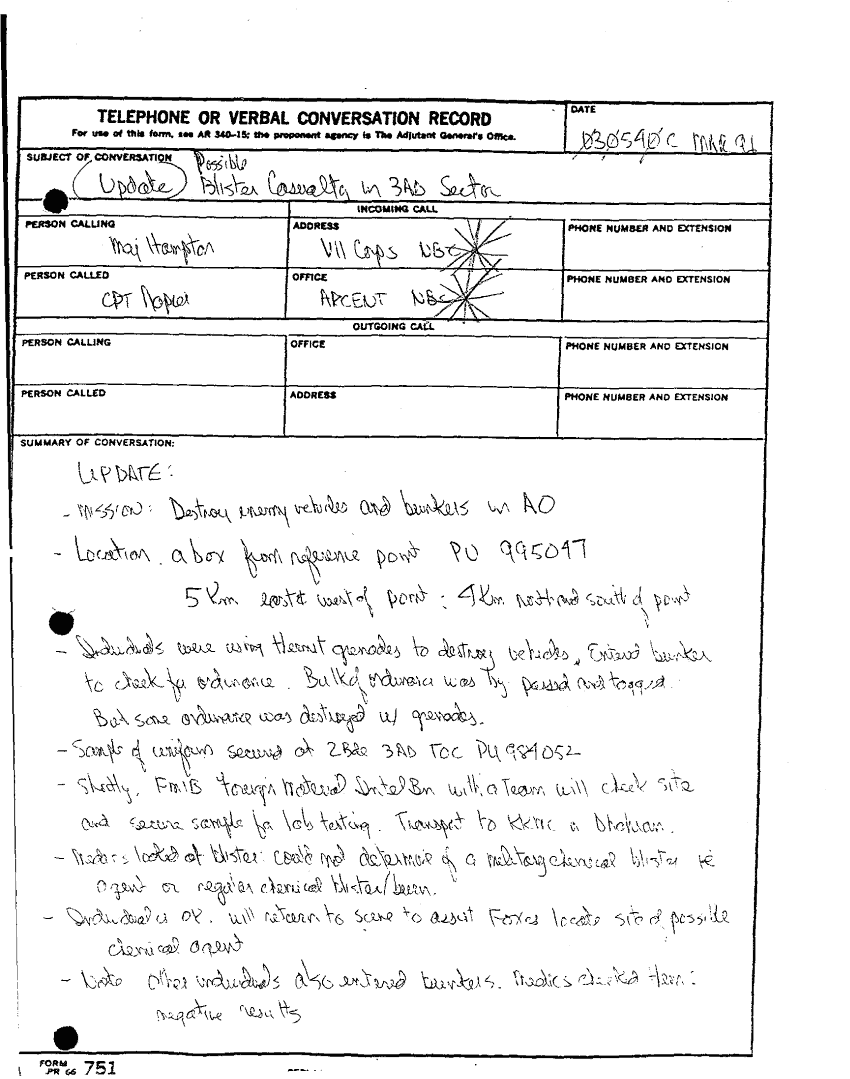 TELEPHONE OR VERBAL CONVERSATION RECORD
For use of this form, see AR 340-15; the proponent agency is The Adjutant General's Office.
DATE
030540C MAR 91
SUBJECT OF CONVERSATION
Possible
Update Blister Casualty in 3AD Sector
INCOMING CALL
PERSON CALLING
Maj Hampton
ADDRESS
VII Corps NBC
PHONE NUMBER AND EXTENSION
PERSON CALLED
CPT Napier
OFFICE
ARCENT NBC
PHONE NUMBER AND EXTENSION
OUTGOING CALL
PERSON CALLING
OFFICE
PHONE NUMBER AND EXTENSION
PERSON CALLED
ADDRESS
PHONE NUMBER AND EXTENSION
SUMMARY OF CONVERSATION:
UPDATE:
- MISSION: Destroy enemy vehicles and bunkers in AO
- Location. a box from reference point PU 995047
5 Km east & west of point : 4 Km north and south of point
- Individuals were using thermit grenades to destroy vehicles. Entered bunker
to check for ordinance. Bulk of ordinance was by passed and tagged.
But some ordinance was destroyed w/ grenades.
- Sample of uniform secured at 2Bde 3AD TOC PU 984052
- Shortly, FMIB Foreign Material Intel Bn with a Team will check site
and secure sample for lab testing. Transport to KKMC or Dhahran.
- Medics looked at blister: could not determine if a military chemical blister
agent or regular chemical blister/burn.
- Individual is OK. will return to scene to assist Foxes locate site of possible
chemical agent
- Note other individuals also entered bunkers. Medics checked them:
negative results
FORM 751